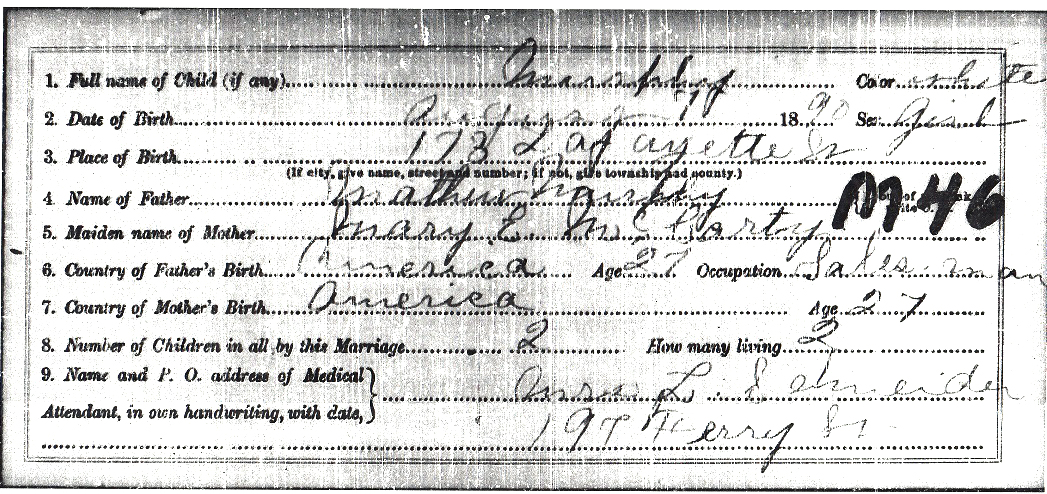 1. Full name of Child (if any) Murphy Color white
2. Date of Birth August 17 1890 Sex Girl
3. Place of Birth 173 Lafayette St
(If city, give name, street and number; if not, give township and county.)
4. Name of Father Mathew Murphy
M46
5. Maiden name of Mother Mary E. McCarty
6. Country of Father's Birth America Age 27 Occupation Salesman
7. Country of Mother's Birth America Age 27
8. Number of Children in all by this Marriage 2 How many living 2
9. Name and P. O. address of Medical Mrs L. Schneider
Attendant, in own handwriting, with date, 197 Ferry St